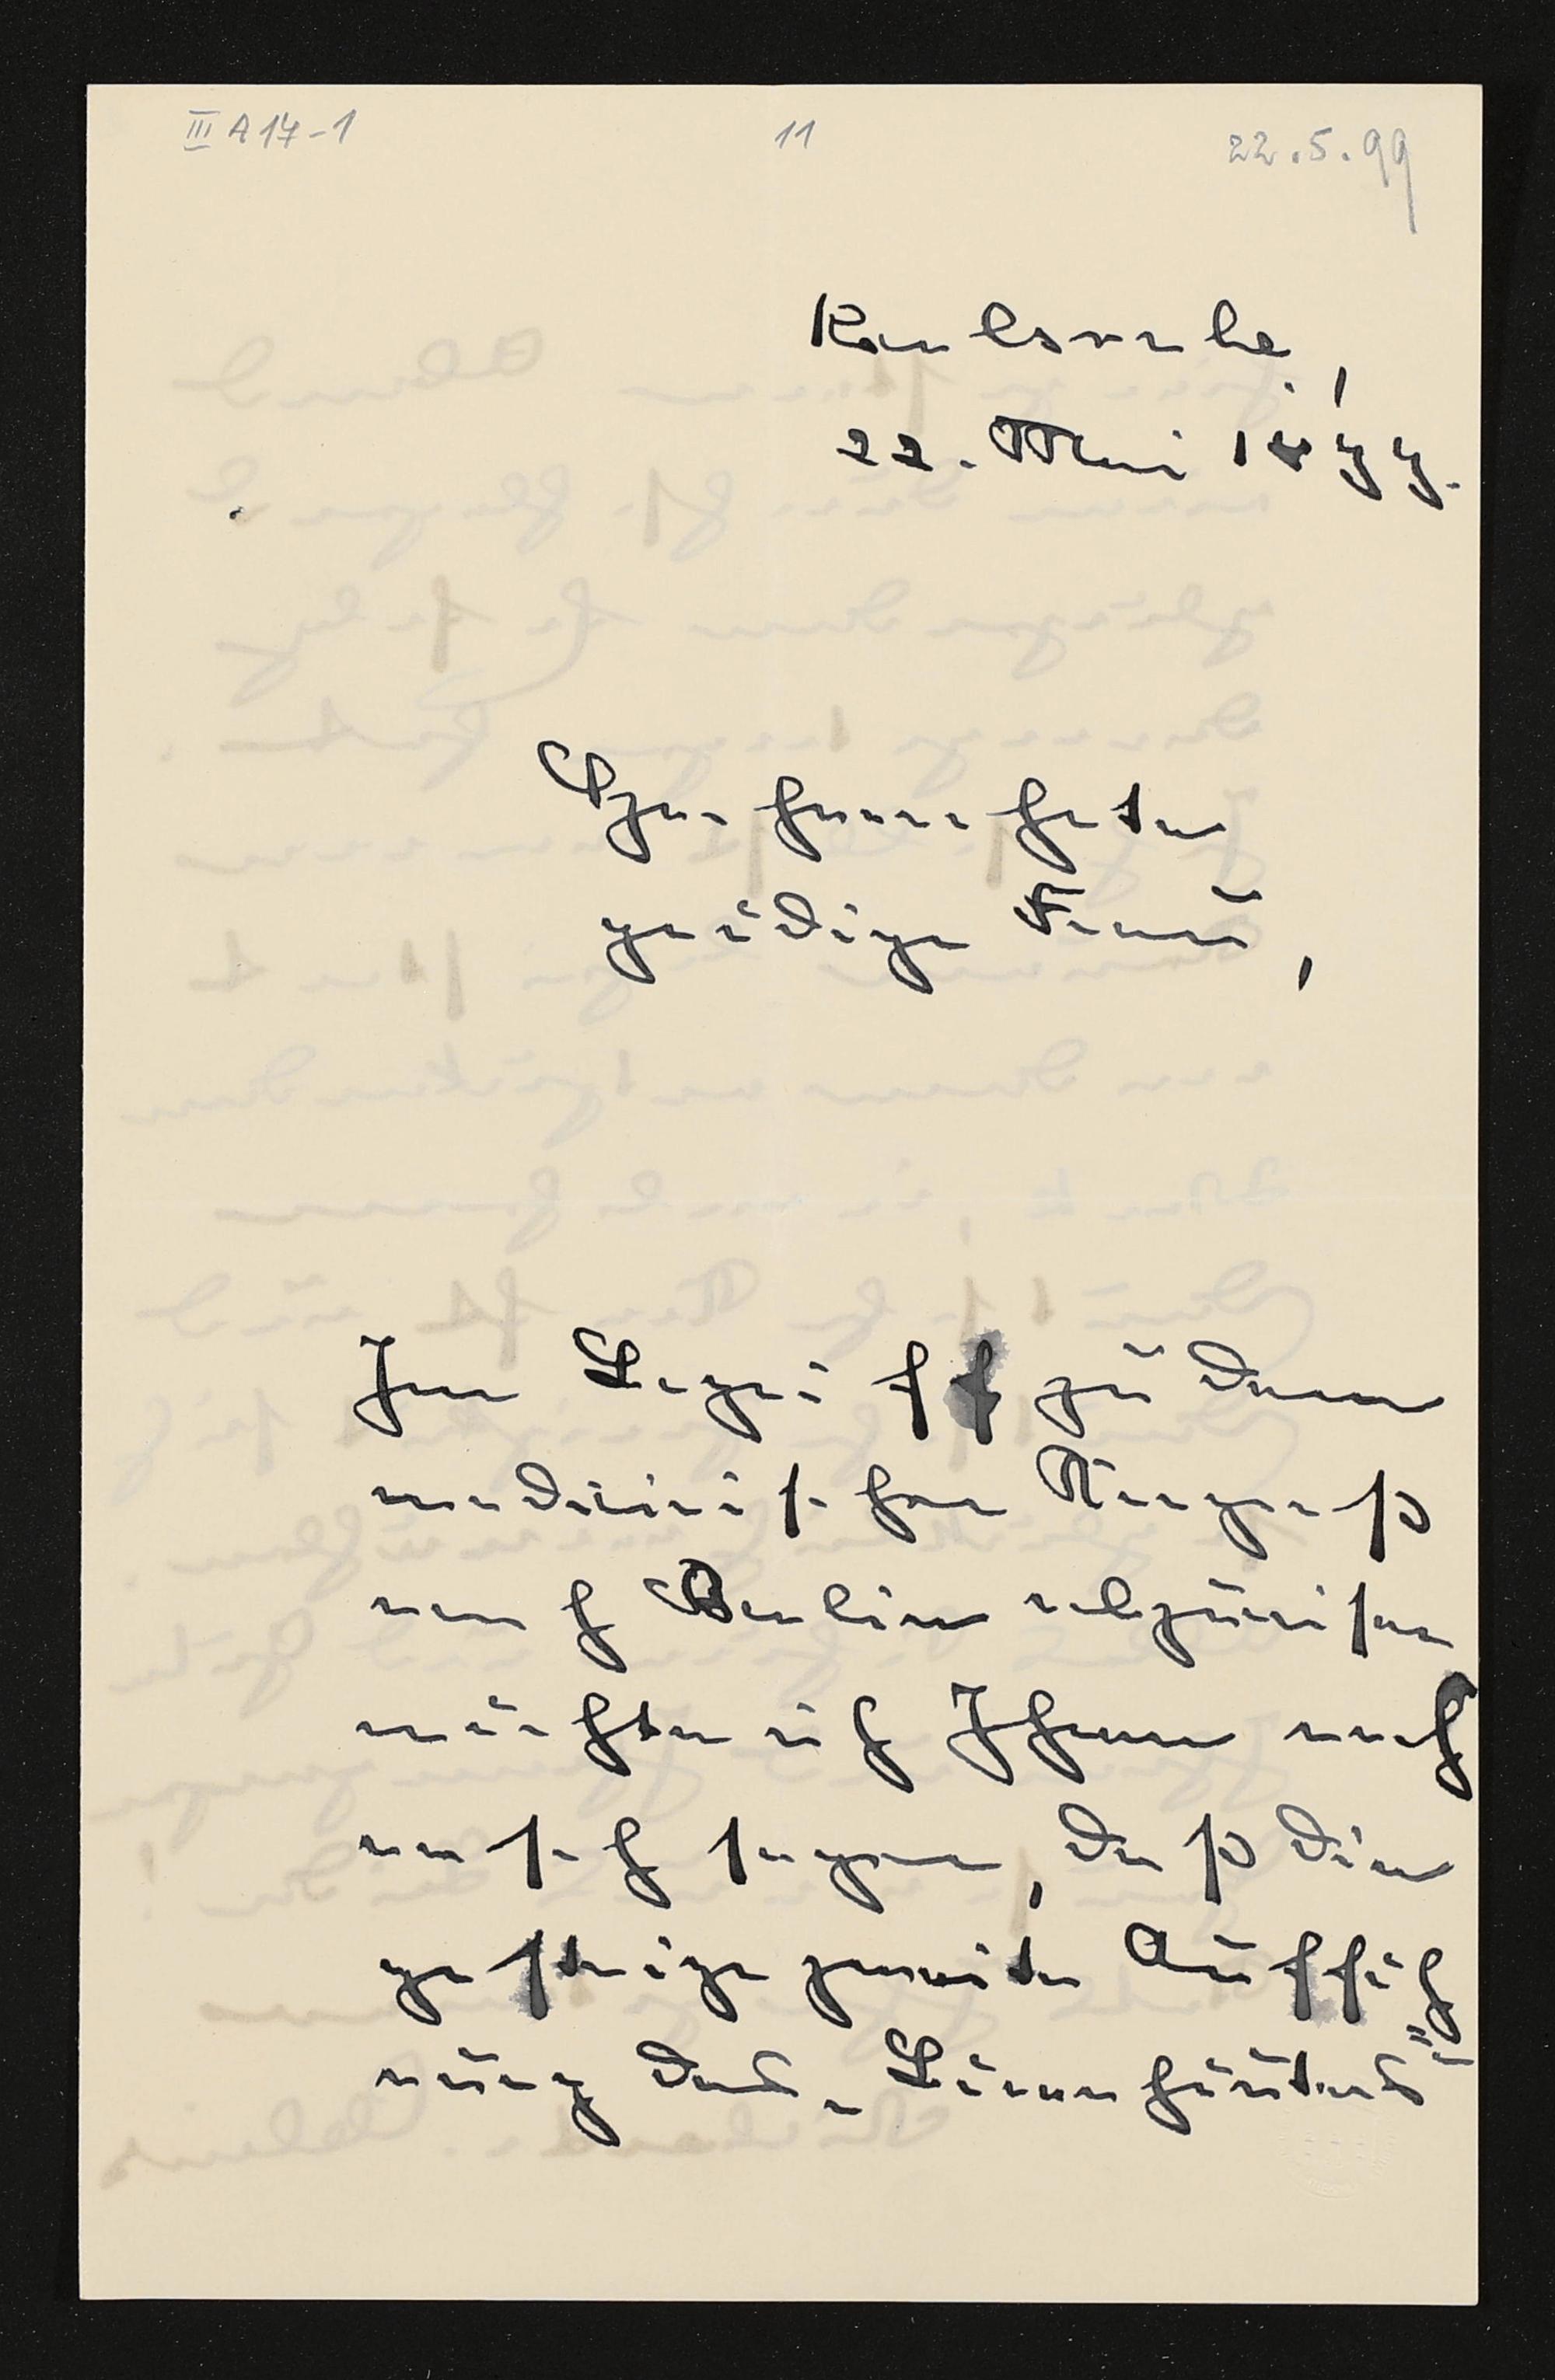 III A 17-1
11
22.5.99
Karlsruhe,
22. Mai 1899.
Hochverehrte
gnädige Frau,
Im Begriff zu dem
medicinischen Kongreß
nach Berlin abzureisen
möchte ich Ihnen noch
rasch sagen, daß die
gestrige zweite Auffüh
rung des „Bärenhäuters"